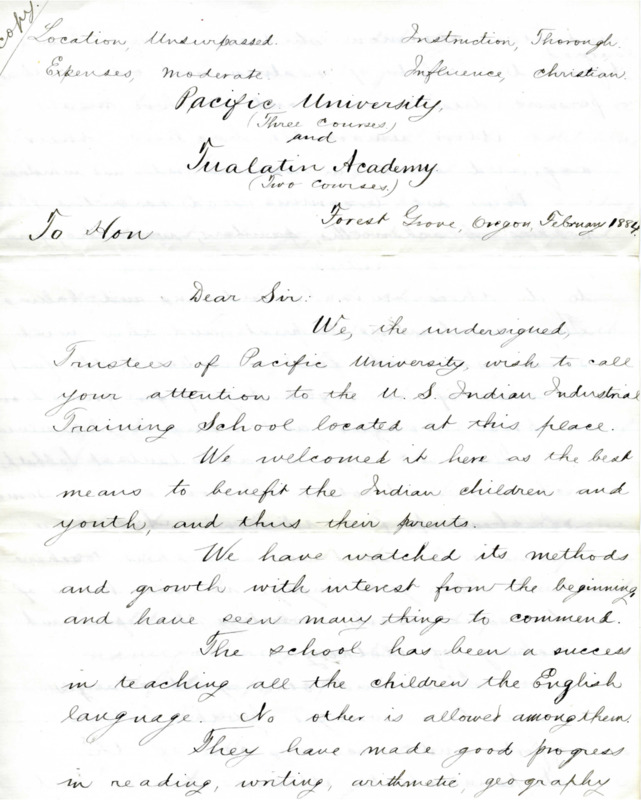 copy.
Location, Unsurpassed. Instruction, Thorough.
Expenses, moderate. Influence, christian.
Pacific University,
(Three courses,)
and
Tualatin Academy.
(Two courses.)
To Hon Forest Grove, Oregon, February 1884.
Dear Sir:
We, the undersigned,
Trustees of Pacific University, wish to call
your attention to the U. S. Indian Industrial
Training School located at this place.
We welcomed it here as the best
means to benefit the Indian children and
youth, and thus their parents.
We have watched its methods
and growth with interest from the beginning,
and have seen many things to commend.
The school has been a success
in teaching all the children the English
language. No other is allowed among them.
They have made good progress
in reading, writing, arithmetic, geography